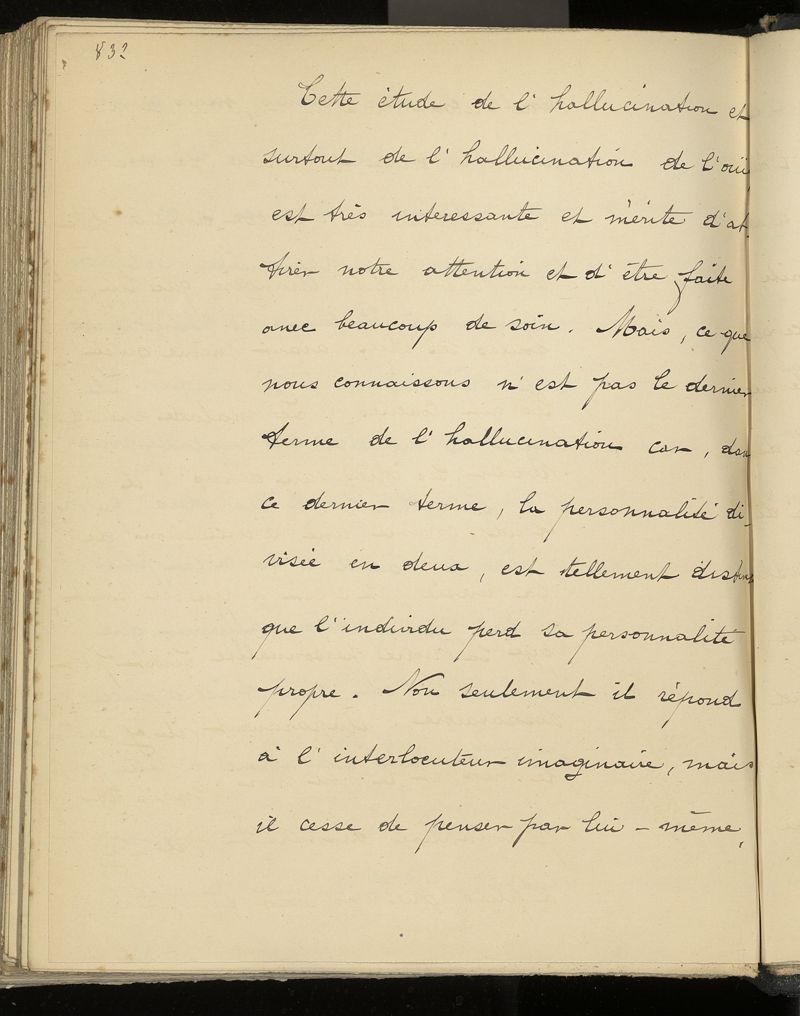 832
Cette étude de l'hallucination et
surtout de l'hallucination de l'ouïe,
est très interessante et mérite d'at-
tirer notre attention et d'être faite
avec beaucoup de soin. Mais, ce que
nous connaissons n'est pas le dernier
terme de l'hallucination car, dans
ce dernier terme, la personnalité di-
visée en deux, est tellement
que l'individu perd sa personnalité
propre. Non seulement il répond
à l'interlocuteur imaginaire, mais
il cesse de penser par lui-même,